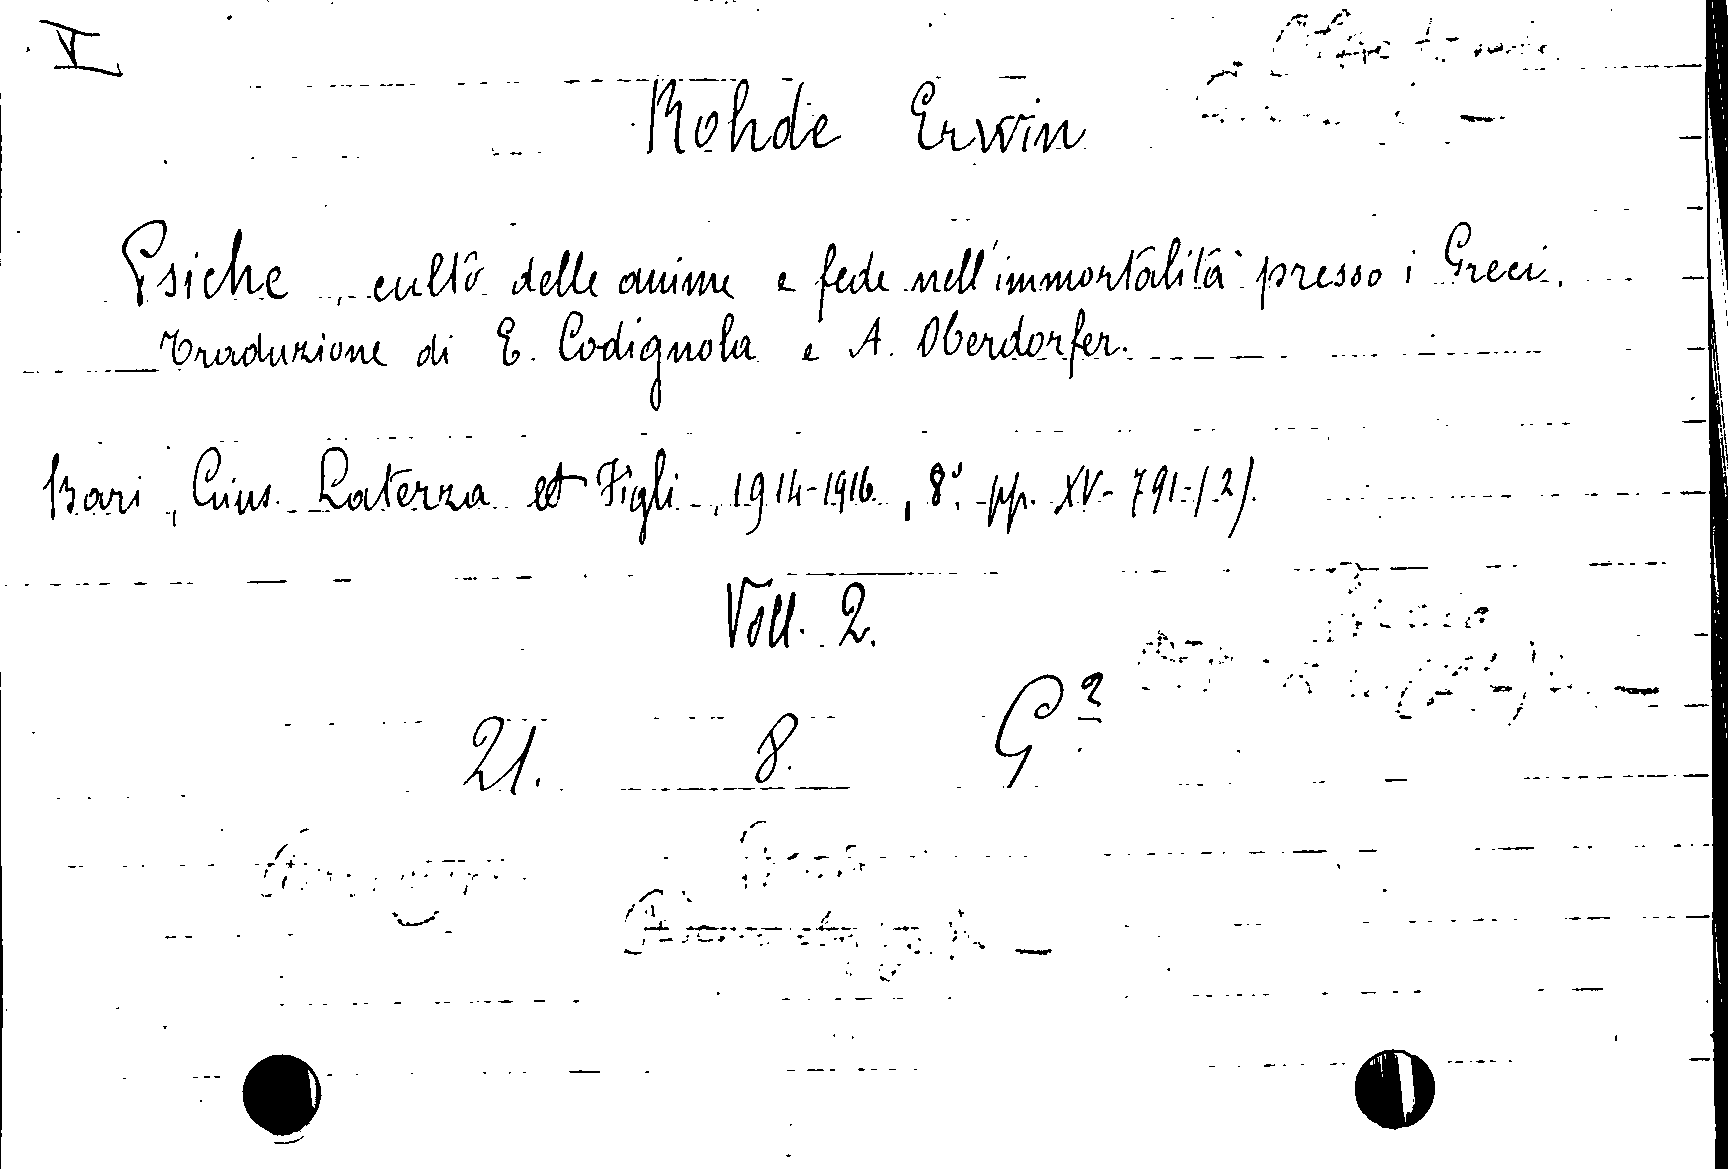 V
Rohde Erwin
Psiche, culto delle anime e fede nell'immortalità presso i Greci.
Traduzione di E. Codignola e A. Oberdorfer.
Bari, Gius. Laterza et Figli, 1914-1916, 8°. pp. XV-791-(2).
Voll. 2.
21. 8. G²